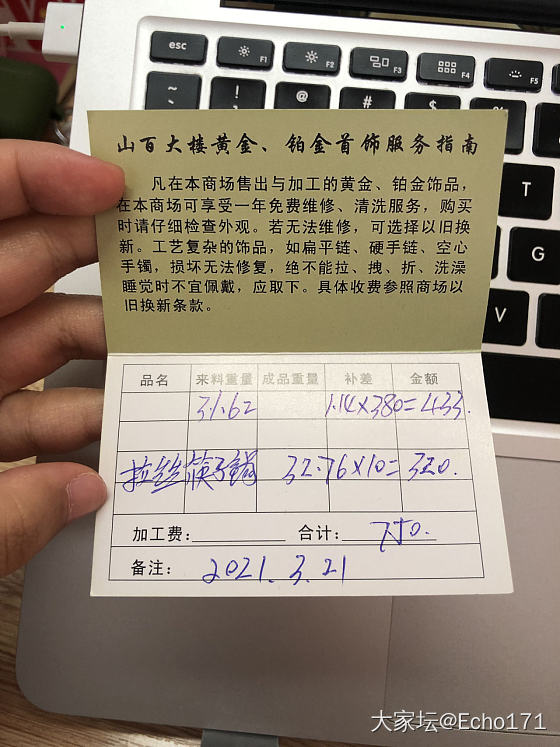 esc
F1
F2
F3
F4
F5
~
!
@
#
$
%
T
G
V
山百大楼黄金、铂金首饰服务指南
凡在本商场售出与加工的黄金、铂金饰品，
在本商场可享受一年免费维修、清洗服务，购买
时请仔细检查外观。若无法维修，可选择以旧换
新。工艺复杂的饰品，如扁平链、硬手链、空心
手镯，损坏无法修复，绝不能拉、拽、折、洗澡
睡觉时不宜佩戴，应取下。具体收费参照商场以
旧换新条款。
品名 来料重量 成品重量 补差 金额
31.62 1.14×380=433.
拉丝筷子镯 32.76×10= 320.
加工费： 合计： 750.
备注： 2021.3.21
大家坛@Echo171